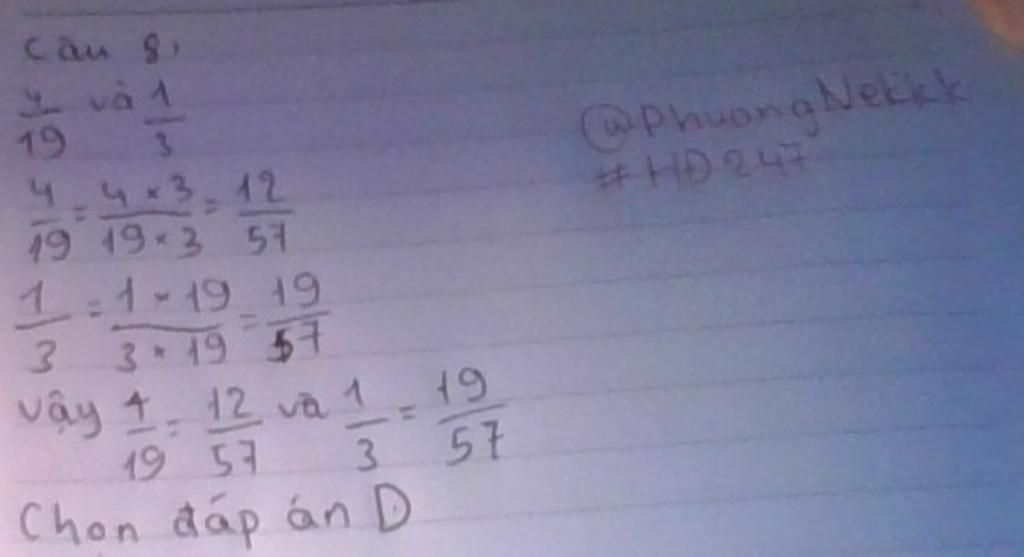 Câu 8,
4/19 và 1/3
@PhuongNekkk
#HĐ247
4/19 = 4 × 3/19 × 3 = 12/57
1/3 = 1 × 19/3 × 19 = 19/57
vậy 4/19 = 12/57 và 1/3 = 19/57
Chon đáp án D